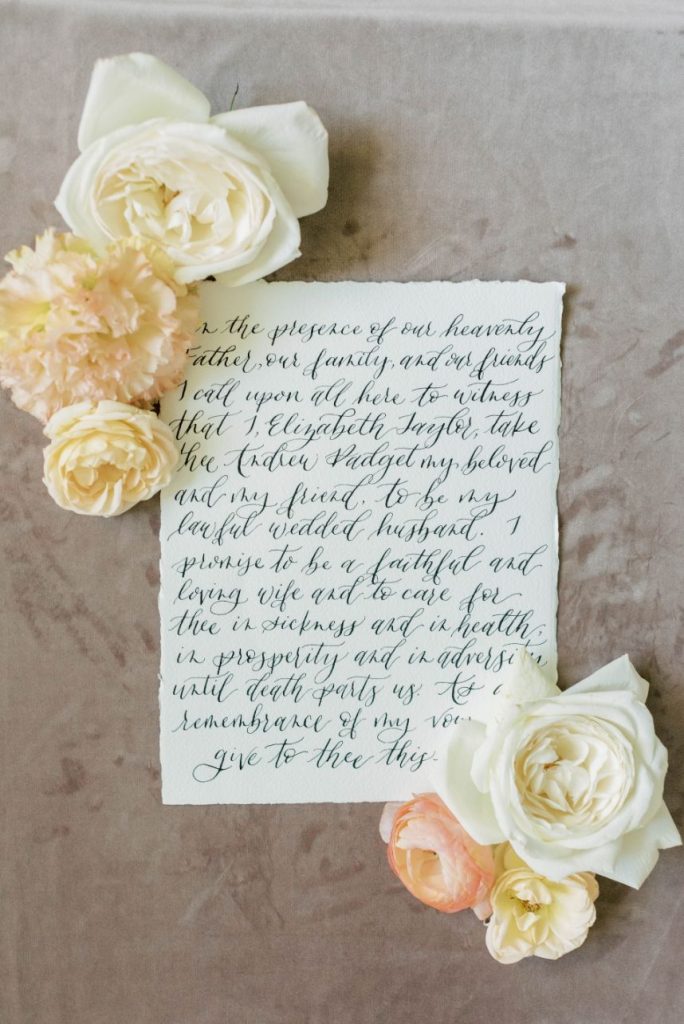 In the presence of our heavenly
Father, our family, and our friends
I call upon all here to witness
that I, Elizabeth Taylor, take
thee Andrew Padget my beloved
and my friend, to be my
lawful wedded husband. I
promise to be a faithful and
loving wife and to care for
thee in sickness and in health,
in prosperity and in adversity
until death parts us. As a
remembrance of my vow
give to thee this